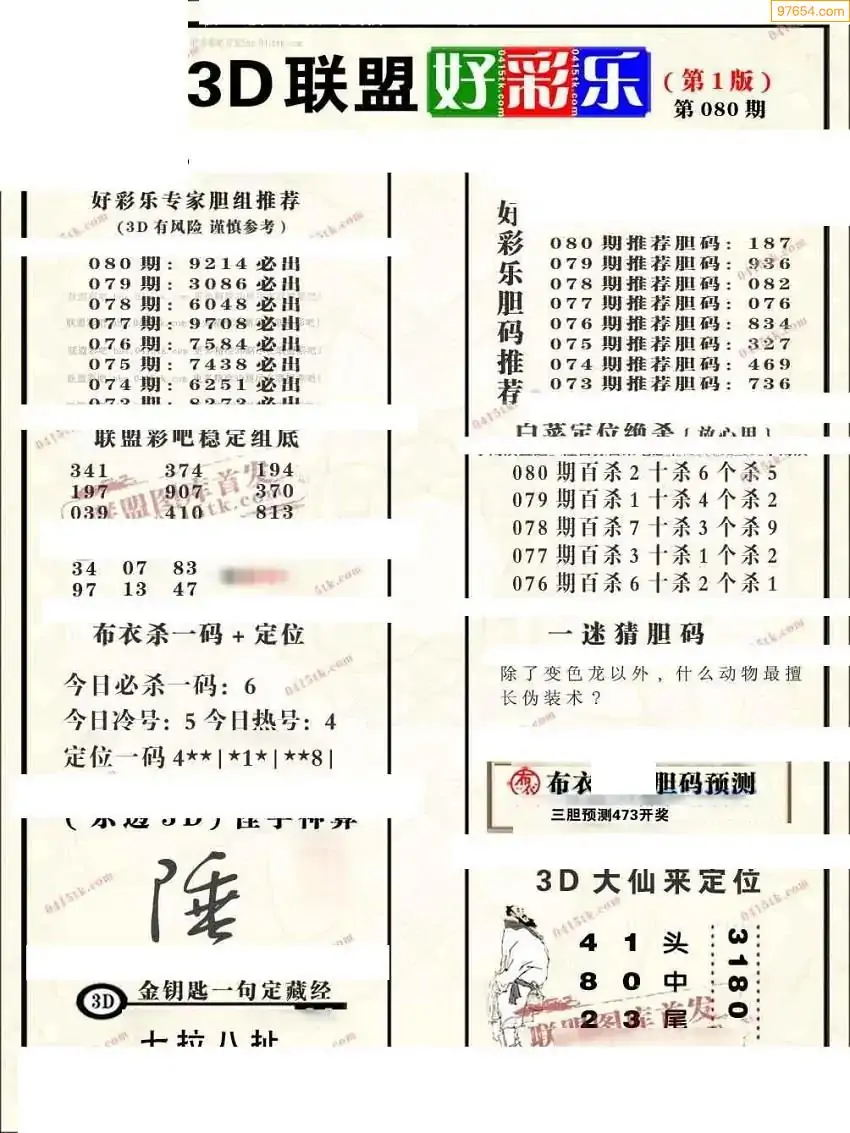 97654.com
3D联盟好彩乐
(第1版)
第080期
好彩乐专家胆组推荐
(3D有风险 谨慎参考)
080期:9214必出
079期:3086必出
078期:6048必出
077期:9708必出
076期:7584必出
075期:7438必出
074期:6251必出
073期:8273必出
联盟彩吧稳定组底
341 374 194
197 907 370
039 410 813
34 07 83
97 13 47
布衣杀一码+定位
今日必杀一码:6
今日冷号:5 今日热号:4
定位一码4**|*1*|**8|
陲
3D 金钥匙一句定藏经
七拉八扯
好彩乐胆码推荐
080期推荐胆码:187
079期推荐胆码:936
078期推荐胆码:082
077期推荐胆码:076
076期推荐胆码:834
075期推荐胆码:327
074期推荐胆码:469
073期推荐胆码:736
白菜定位绝杀(放心用)
080期百杀2十杀6个杀5
079期百杀1十杀4个杀2
078期百杀7十杀3个杀9
077期百杀3十杀1个杀2
076期百杀6十杀2个杀1
一迷猜胆码
除了变色龙以外,什么动物最擅
长伪装术?
布衣 胆码预测
三胆预测473开奖
3D大仙来定位
4 1 头
8 0 中
2 3 尾
3180
联盟图库首发
0415tk.com